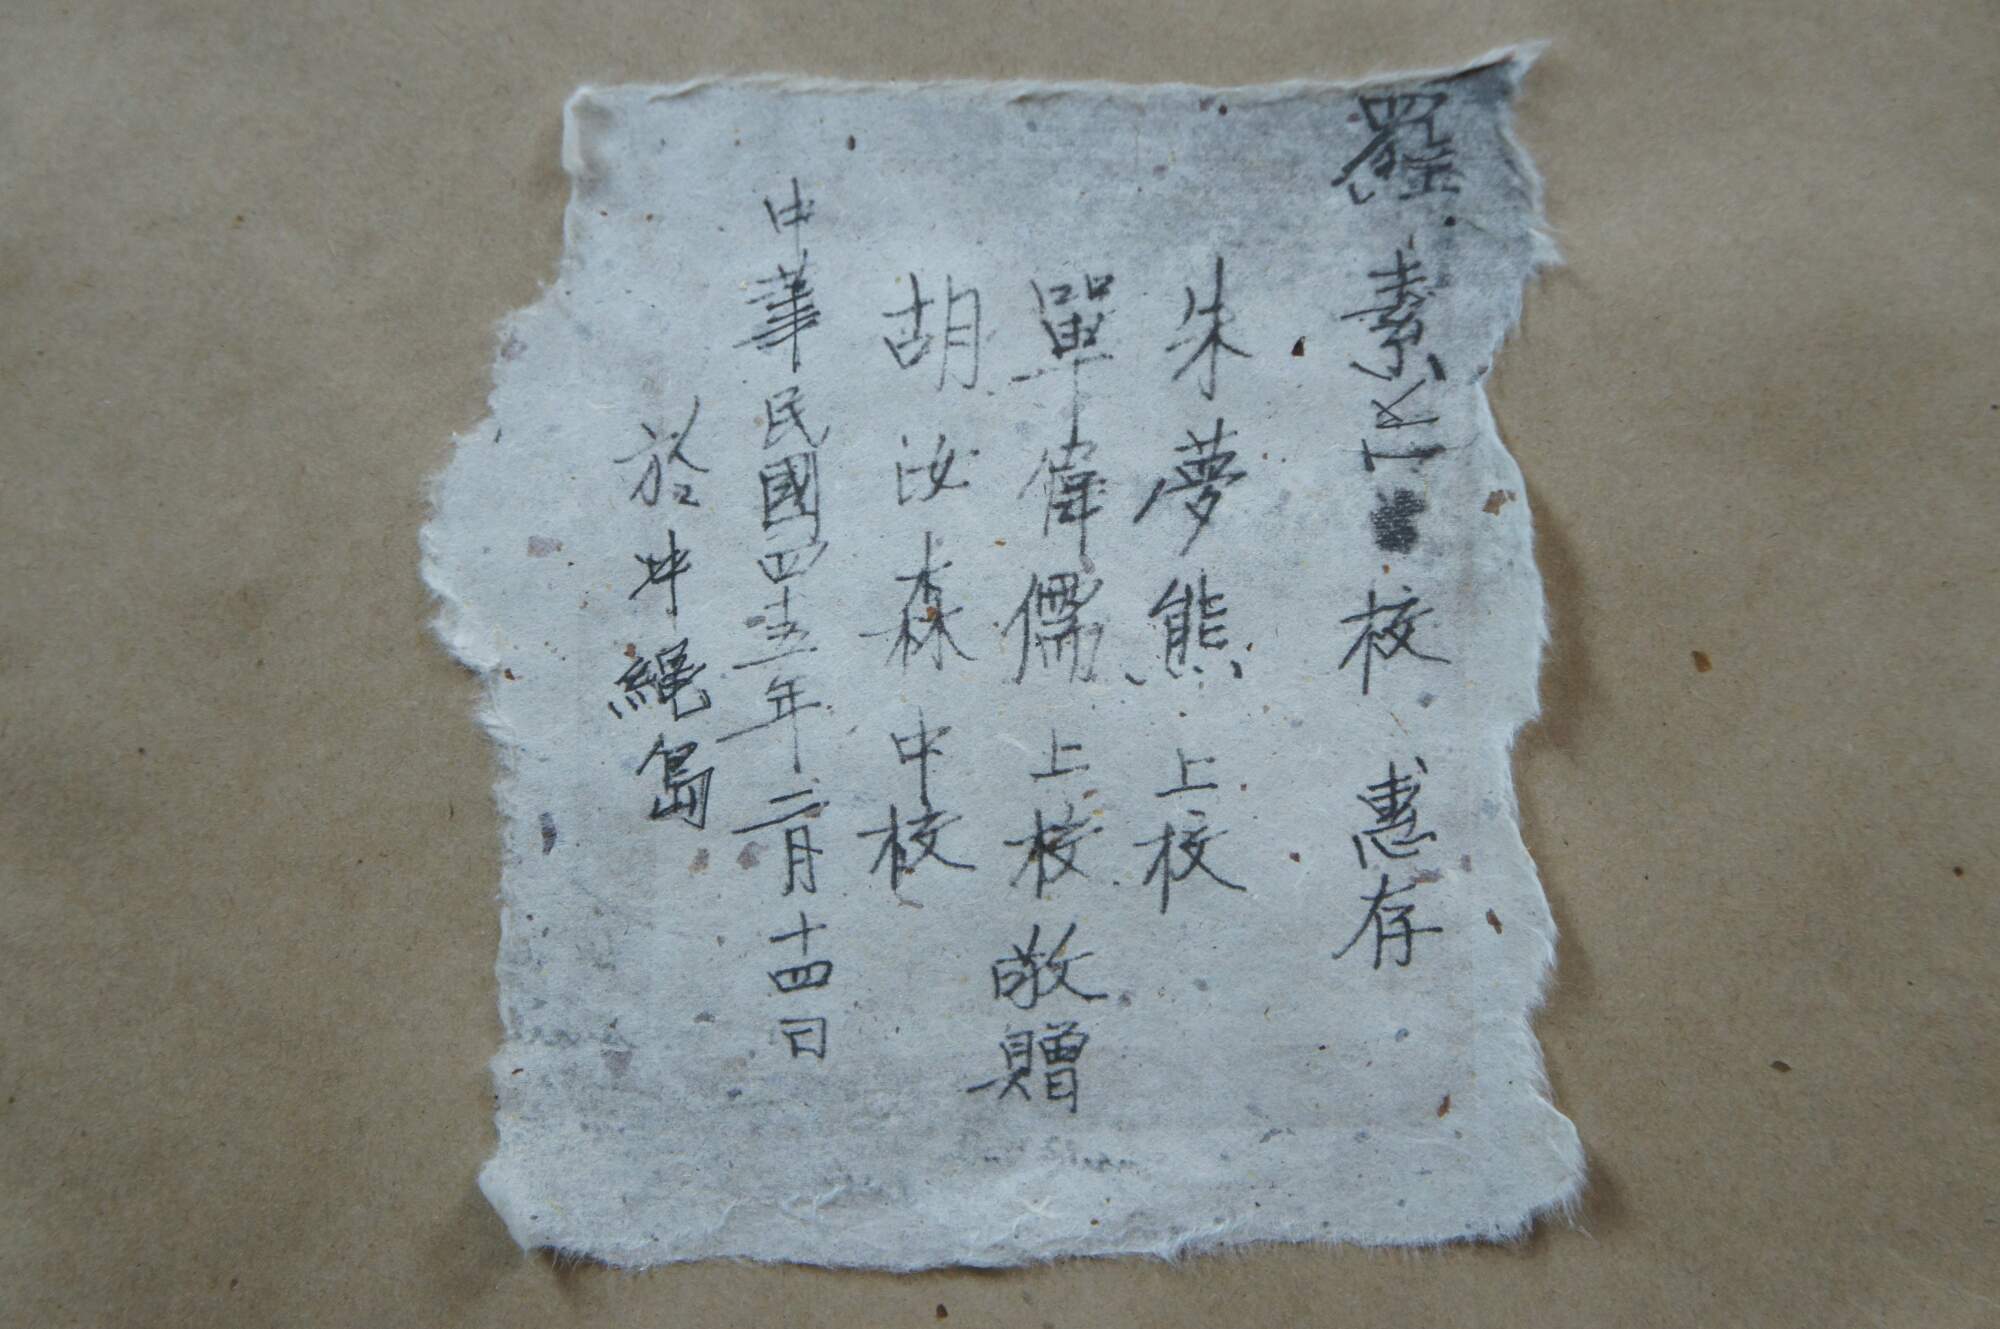 羅素校 惠存
朱夢熊 上校
單偉儒 上校敬贈
胡汝森 中校
中華民國四十五年二月十四日
於冲繩島